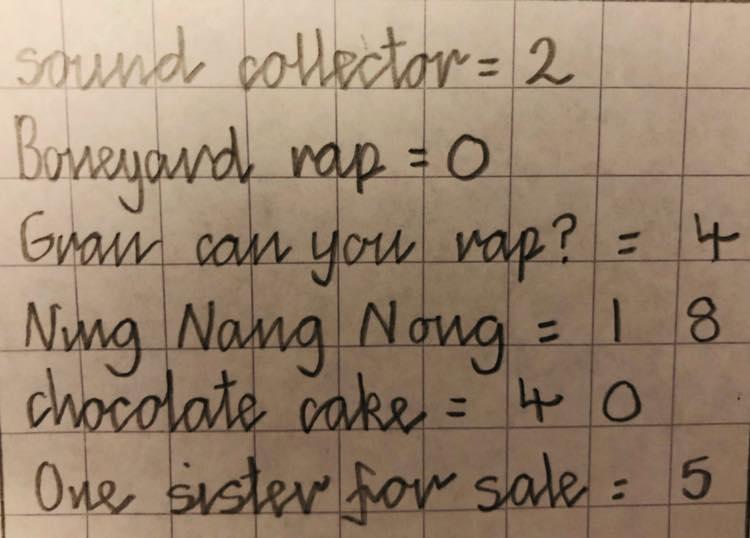 sound collector = 2
Boneyard rap = 0
Gran can you rap? = 4
Ning Nang Nong = 1 8
chocolate cake = 4 0
One sister for sale = 5